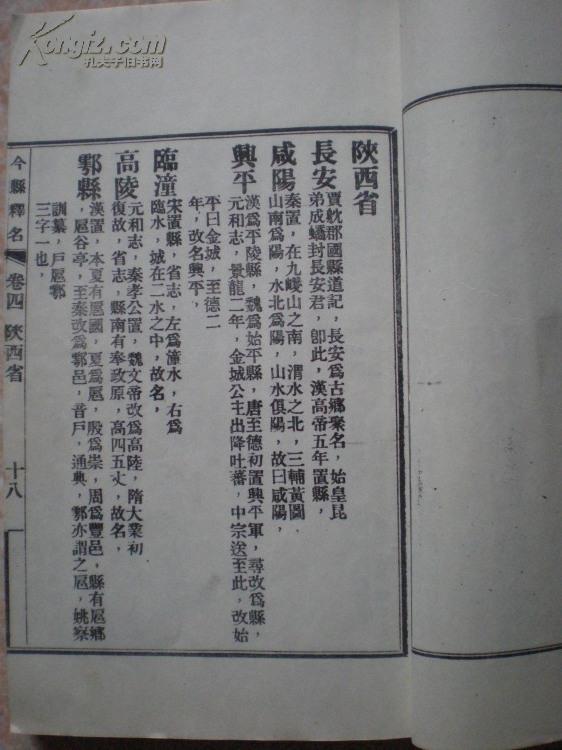 Kongfz.com
孔夫子旧书网
陝西省
長安
賈躭郡國縣道記，長安爲古鄉聚名，始皇昆
弟成蟜封長安君，卽此，漢高帝五年置縣，
咸陽
秦置，在九嵏山之南，渭水之北，三輔黃圖，
山南爲陽，水北爲陽，山水俱陽，故曰咸陽，
興平
漢爲平陵縣，魏爲始平縣，唐至德初置興平軍，尋改爲縣，
元和志，景龍二年，金城公主出降吐蕃，中宗送至此，改始
平曰金城，至德二
年，改名興平，
臨潼
宋置縣，省志，左爲潼水，右爲
臨水，城在二水之中，故名，
高陵
元和志，秦孝公置，魏文帝改爲高陸，隋大業初
復故，省志，縣南有奉政原，高四五丈，故名，
鄠縣
漢置，本夏有扈國，夏爲扈，殷爲崇，周爲豐邑，縣有扈鄉
，扈谷亭，至秦改爲鄠邑，音戶，通典，鄠亦謂之扈，姚察
訓纂，戶扈鄠
三字一也，
今縣釋名
卷四 陝西省
十八